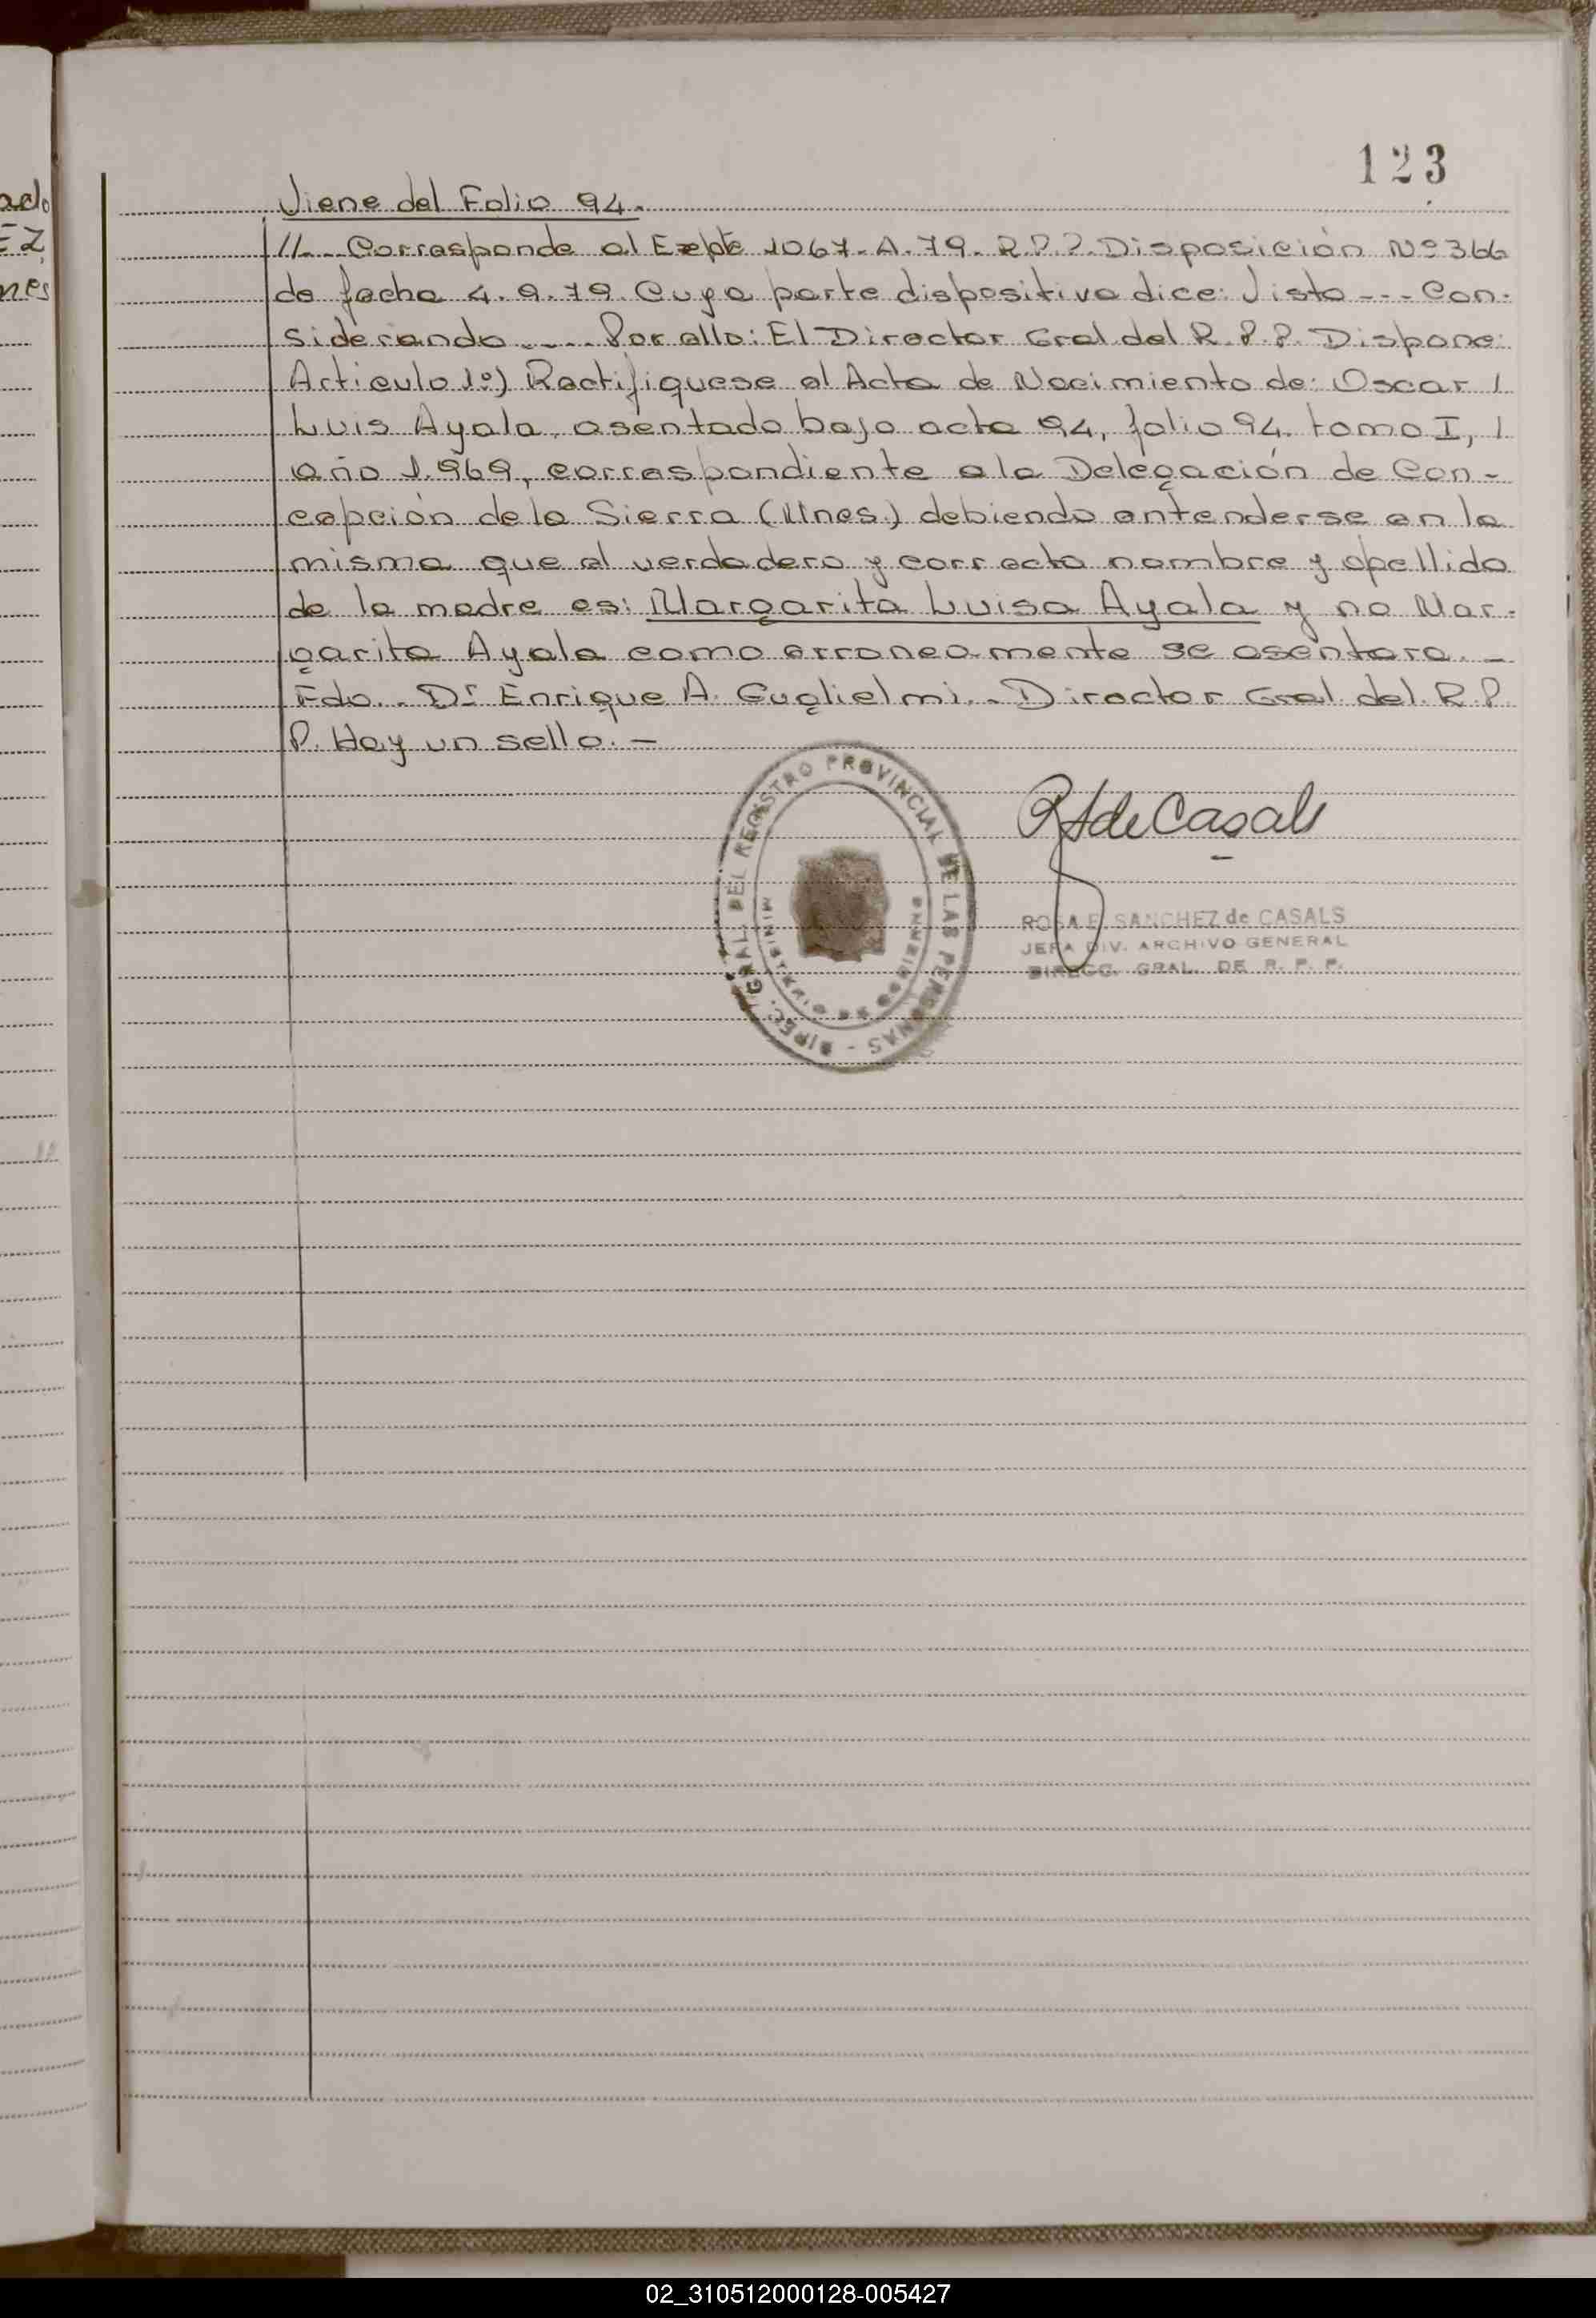 123
Viene del Folio 94.
//--- Corresponde al Expte 1067-A-79-R.P.P. Disposición Nº 366
de fecha 4.9.79. Cuya parte dispositiva dice: Visto --- Con-
siderando ---- Por ello: El Director Gral del R.P.P. Dispone:
Articulo 1º) Rectifiquese el Acta de Nacimiento de: Oscar /
Luis Ayala, asentado bajo acta 94, folio 94. tomo I, /
año 1.969, correspondiente a la Delegación de Con-
cepción de la Sierra (Mnes.) debiendo entenderse en la
misma que el verdadero y correcto nombre y apellido
de la madre es: Margarita Luisa Ayala y no Mar-
garita Ayala como erroneamente se asentara. -
Fdo.- Dr Enrique A. Guglielmi.- Director Gral del R.P.
P. Hay un sello. -
DIREC. GRAL. DEL REGISTRO PROVINCIAL DE LAS PERSONAS -
MINISTERIO DE GOBIERNO
RS de Casals
ROSA E. SANCHEZ de CASALS
JEFA DIV. ARCHIVO GENERAL
DIRECC. GRAL. DE R. P. P.
ado
EZ
nes
02_310512000128-005427